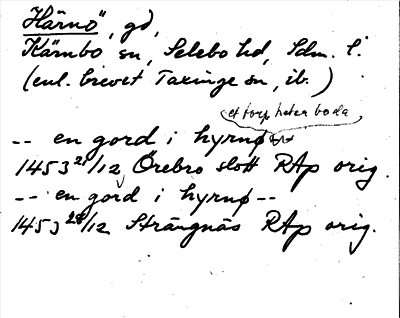 Härnö, gd,
Kärnbo sn, Selebo hd, Sdm. l.
(enl. brevet Taxinge sn, ib.)
et torp heter boda
-- en gord i hyrnø
1453 21/12, Örebro slott RAp orig.
-- en gord i hyrnø --
1453 28/12 Strängnäs RAp orig.